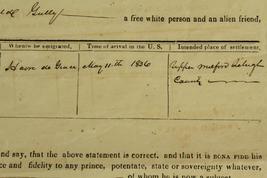 Gully
a free white person and an alien friend,
Whence he emigrated, Time of arrival in the U. S. Intended place of settlement,
Havre de Grace May 11th 1836 Upper Milford Lehigh
County
and say, that the above statement is correct, and that it is BONA FIDE his
ce and fidelity to any prince, potentate, state or sovereignty whatever,
of whom he is now a subject